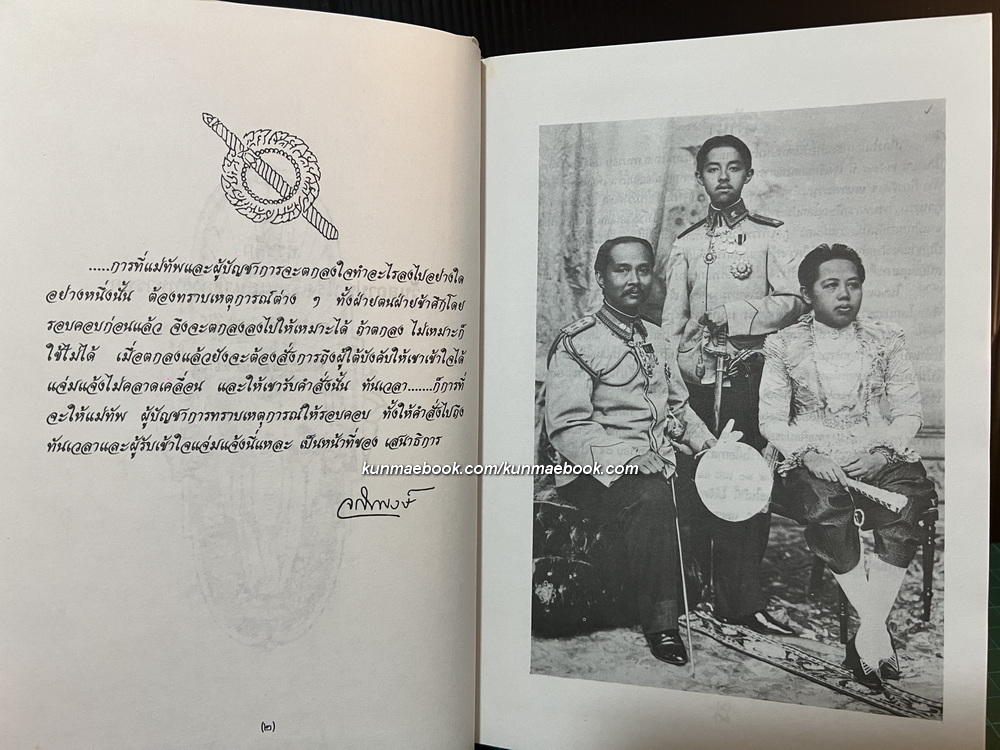 .....การที่แม่ทัพและผู้บัญชาการจะตกลงใจทำอะไรลงไปอย่างใด
อย่างหนึ่งนั้น ต้องทราบเหตุการณ์ต่าง ๆ ทั้งฝ่ายตนฝ่ายข้าศึกโดย
รอบคอบก่อนแล้ว จึงจะตกลงลงไปให้เหมาะได้ ถ้าตกลง ไม่เหมาะก็
ใช้ไม่ได้ เมื่อตกลงแล้วยังจะต้องสั่งการถึงผู้ใต้บังคับให้เขาเข้าใจได้
แจ่มแจ้งไม่คลาดเคลื่อน และให้เขารับคำสั่งนั้น ทันเวลา.......ก็การที่
จะให้แม่ทัพ ผู้บัญชาการทราบเหตุการณ์ให้รอบคอบ ทั้งให้คำสั่งไปถึง
ทันเวลาและผู้รับเข้าใจแจ่มแจ้งนี่แหละ เป็นหน้าที่ของ เสนาธิการ
kunmaebook.com/kunmaebook.com
(๒)